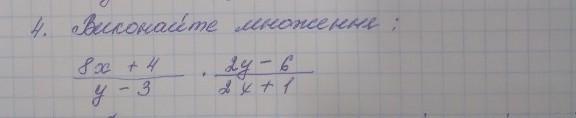 4. Виконайте множення:
8x + 4 / y - 3 · 2y - 6 / 2x + 1